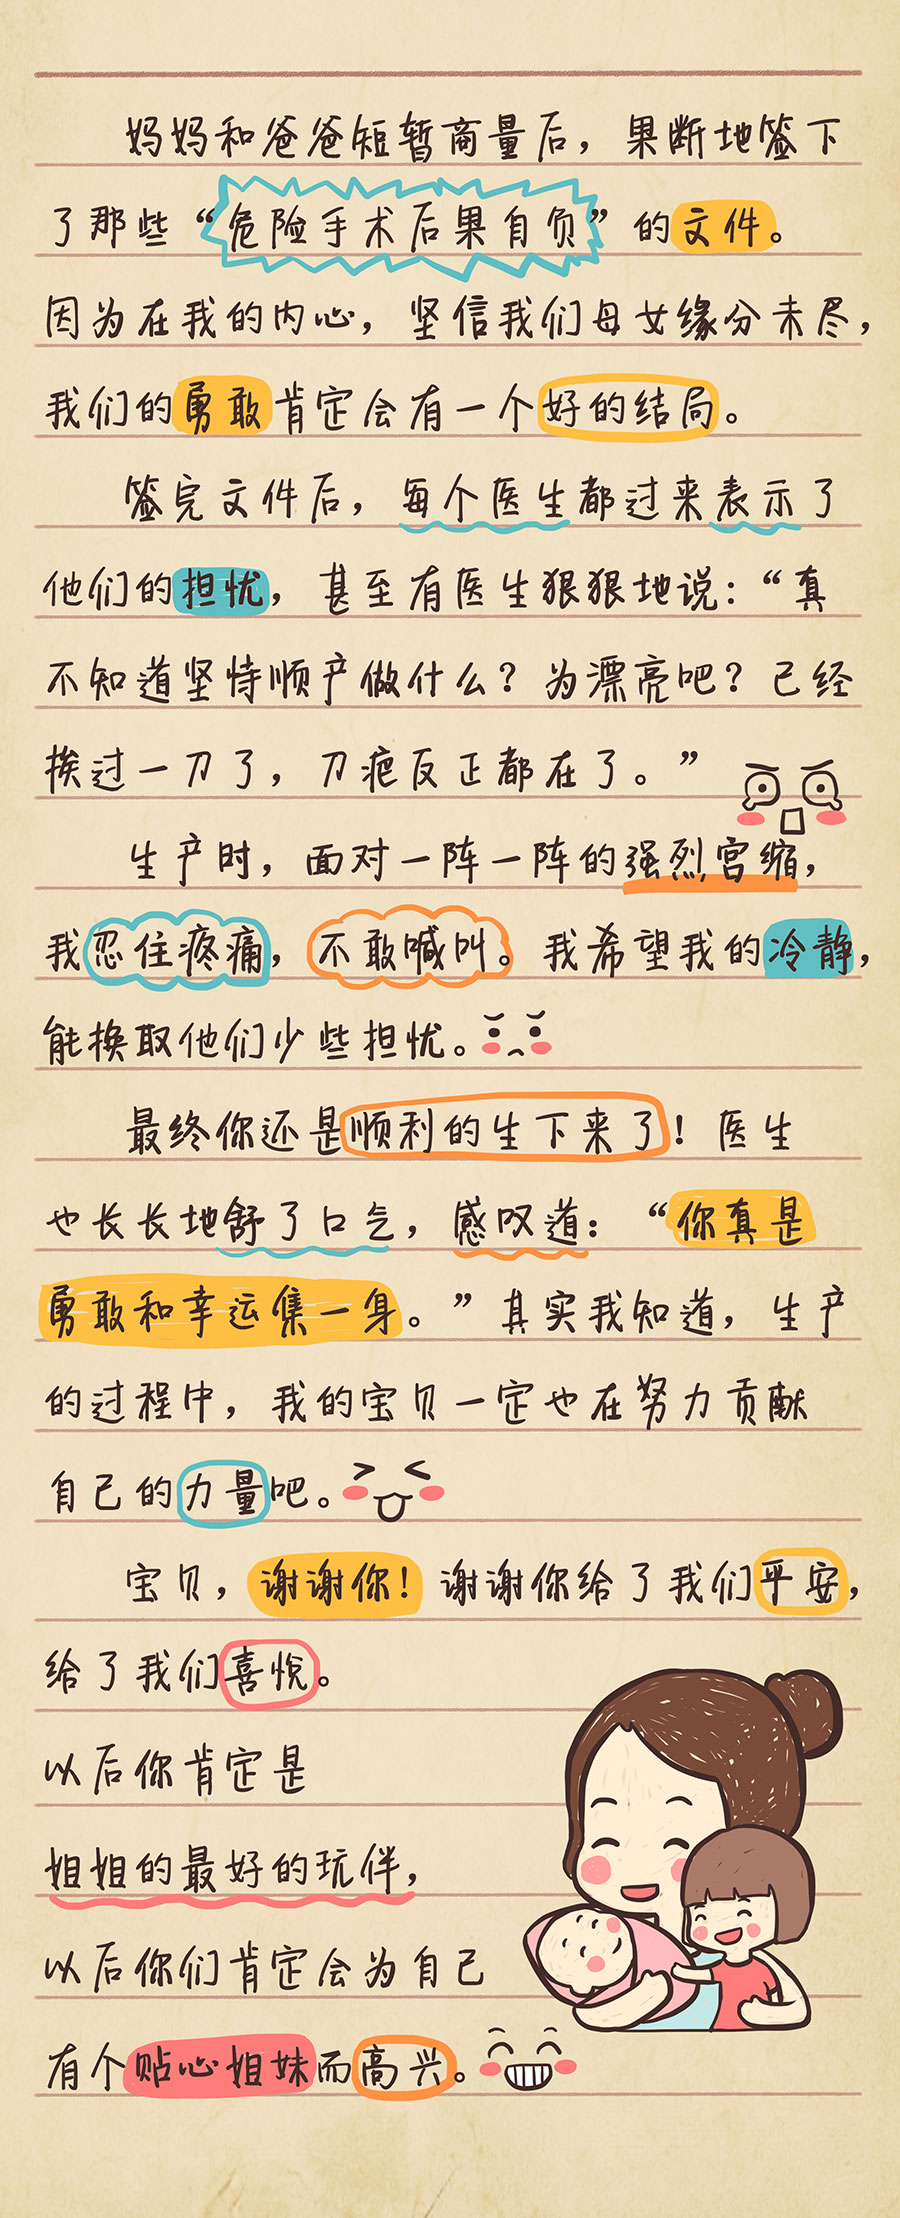 妈妈和爸爸短暂商量后，果断地签下
了那些“危险手术后果自负”的文件。
因为在我的内心，坚信我们母女缘分未尽，
我们的勇敢肯定会有一个好的结局。
签完文件后，每个医生都过来表示了
他们的担忧，甚至有医生狠狠地说：“真
不知道坚持顺产做什么？为漂亮吧？已经
挨过一刀了，刀疤反正都在了。”
生产时，面对一阵一阵的强烈宫缩，
我忍住疼痛，不敢喊叫。我希望我的冷静，
能换取他们少些担忧。
最终你还是顺利的生下来了！医生
也长长地舒了口气，感叹道：“你真是
勇敢和幸运集一身。”其实我知道，生产
的过程中，我的宝贝一定也在努力贡献
自己的力量吧。
宝贝，谢谢你！谢谢你给了我们平安，
给了我们喜悦。
以后你肯定是
姐姐的最好的玩伴，
以后你们肯定会为自己
有个贴心姐妹而高兴。